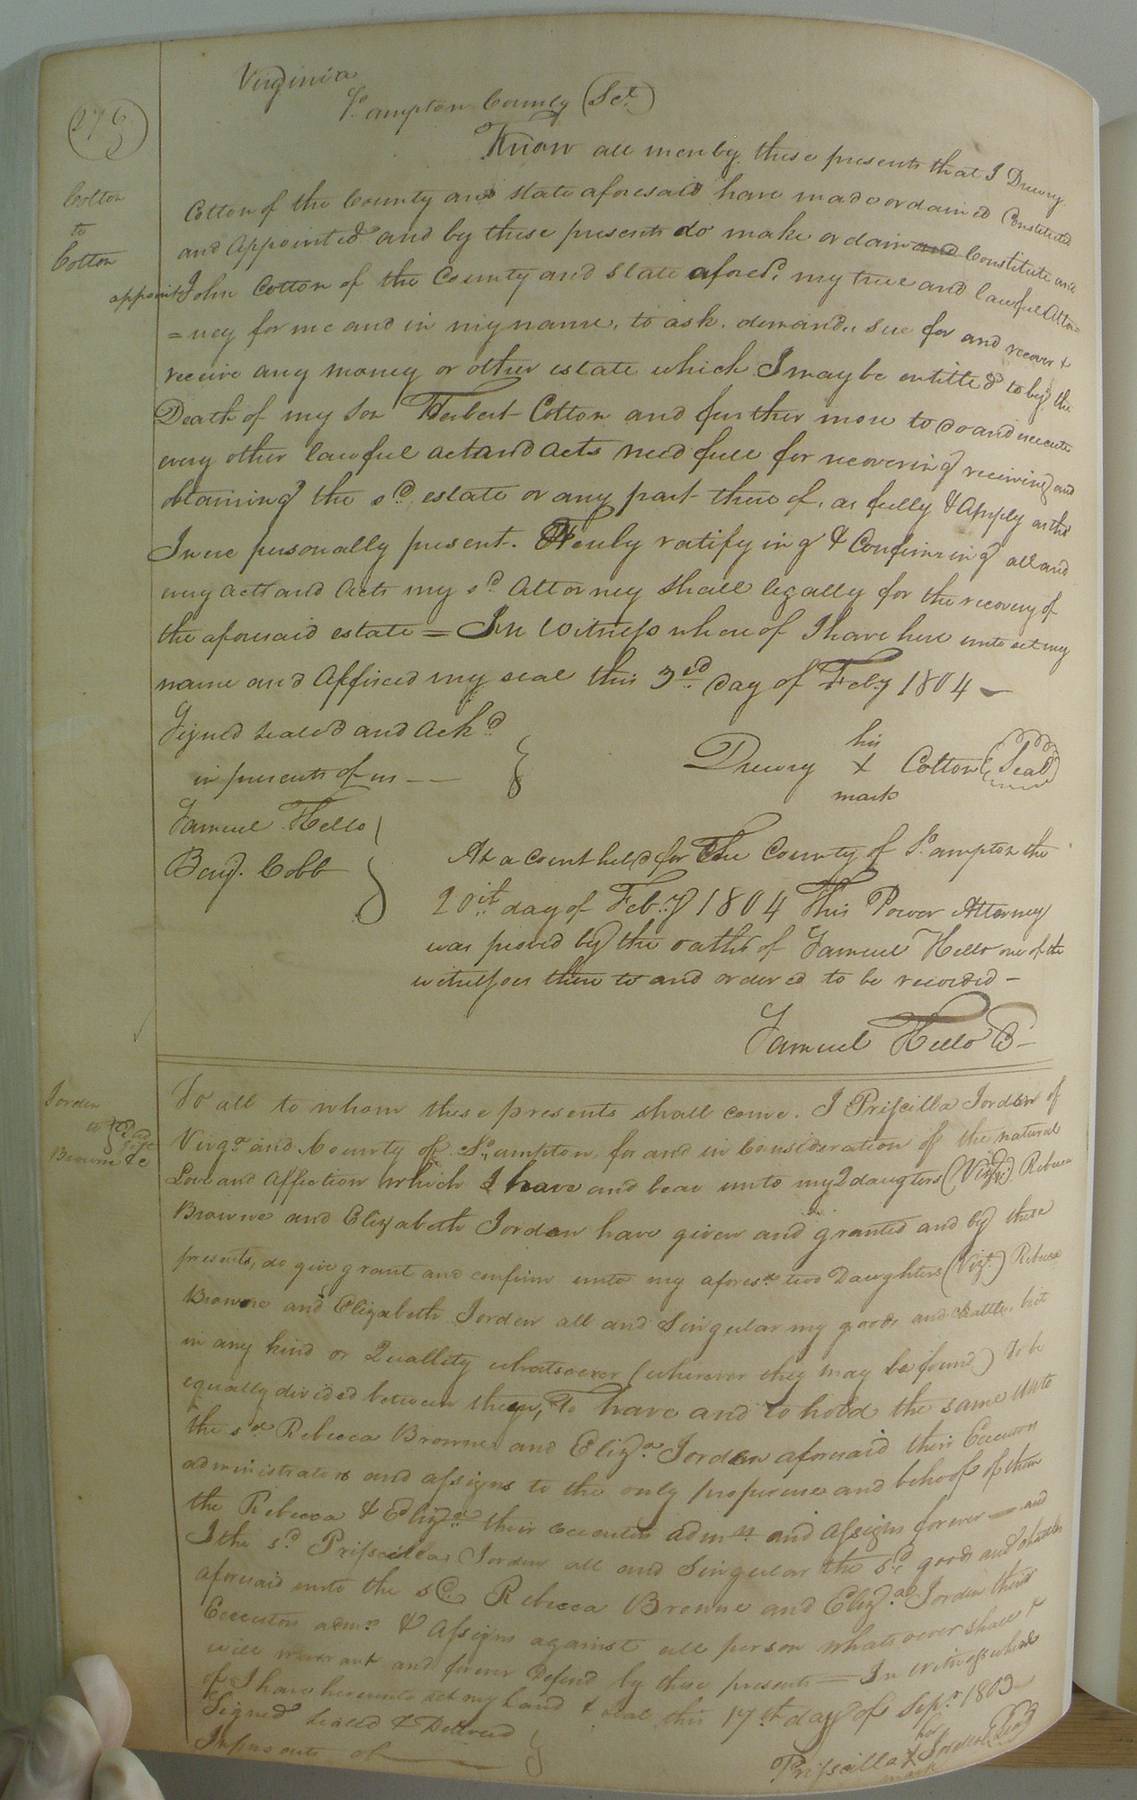 Virginia
So. ampton County (Sct.)
Know all men by these presents that I Drewry
Cotton of the County and state aforesaid have made ordained Constituted
and Appointed and by these presents do make ordain and Constitute and
appoint John Cotton of the County and State aforesd. my true and lawful Attor=
=ney for me and in my name, to ask, demand, sue for and recover &
receive any money or other estate which I may be entitled to by the
Death of my son Herbert Cotton and further more to do and execute
every other lawful act and acts need full for recovering receiving and
obtaining the sd. estate or any part there of, as fully & Amply as tho
I were personally present. Hereby ratifying & Confirming all and
every act and Acts my sd. Attorney shall legally for the recovery of
the aforesaid estate = In Witness where of I have here unto set my
name and Affixed my seal this 3rd day of Feby 1804 —
Signed sealed and ackd.
in presents of us — —
Samuel Hello
Benj. Cobb
his
Drewry X Cotton (Seal)
mark
At a Court held for The County of So. ampton the
20th day of Feby 1804 This Power Attorney
was proved by the oath of Samuel Hello one of the
witnesses there to and ordered to be recorded —
Samuel Hello C
273
Cotton
to
Cotton
To all to whom these presents shall come. I Priscilla Jorden of
Virga. and County of So. ampton, for and in Consideration of the natural
Love and Affection which I have and bear unto my 2 daugters (Vizt.) Rebecca
Browne and Elizabeth Jorden have given and granted and by these
presents, do give grant and confirm unto my aforesd. two Daughters (Vizt.) Rebecca
Browne and Elizabeth Jorden all and Singular my goods and Chattles, but
in any kind or Quallity whatsoever (wherever they may be found) To be
equally divided between them, To have and to hold the same unto
the sd. Rebecca Browne and Eliza. Jorden aforesaid their Executors
administrators and assigns to the only proper use and behoof of them
the Rebecca & Eliza. their executors adms. and Assigns forever — and
I the sd. Prisscilla Jorden all and Singular the sd. goods and chattles
aforesaid unto the sd. Rebecca Browne and Eliza. Jorden their
Executors adms. & Assigns against all person whatsoever shall &
will warrant and forever Defend by these presents — In witness where
of I have hereunto set my hand & seal this 17th day of Sepr. 1803
Signed Sealed & Delivered
In presents of
her
Prisscilla X Jorden (Seal)
mark
Jorden
to
Browne &c